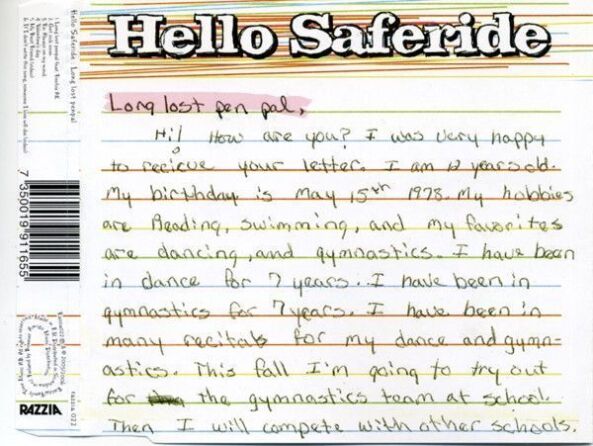 Hello Saferide
Long lost pen pal,
Hi! How are you? I was very happy
to recieve your letter. I am 12 years old.
My birthday is May 15th 1978. My hobbies
are Reading, swimming, and my favorites
are dancing, and gymnastics. I have been
in dance for 7 years. I have been in
gymnastics for 7 years. I have been in
many recitals for my dance and gymn-
astics. This fall I'm going to try out
for the gymnastics team at school.
Then I will compete with other schools.
Hello Saferide Long lost penpal
7 350019 911655
RAZZIA
razzia 022